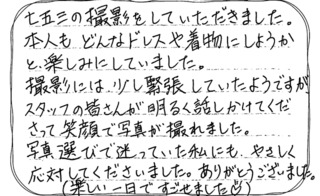 七五三の撮影をしていただきました。
本人も どんなドレスや着物にしようか
と、楽しみにしていました。
撮影には 少し緊張していたようですが
スタッフの皆さんが明るく話しかけてくだ
さって 笑顔で写真が撮れました。
写真選びで迷っていた私にも、やさしく
応対してくださいました。ありがとうございました。
(楽しい一日ですごせました☺)